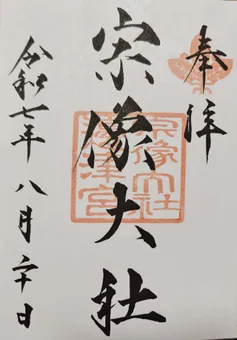 奉拝
宗像大社
宗像大社
津宮
令和七年八月二十日